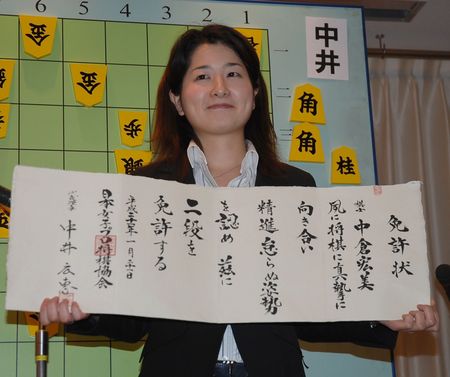 免許状
女流棋士 中倉宏美
夙に将棋に真摯に
向き合い
精進怠らぬ姿勢
を認め 茲に
二段を
免許する
平成二十年一月二十日
日本女子プロ将棋協会
中井広恵
6
5
4
3
2
1
一
二
中井
角
角
桂
金
金
金
歩
銀